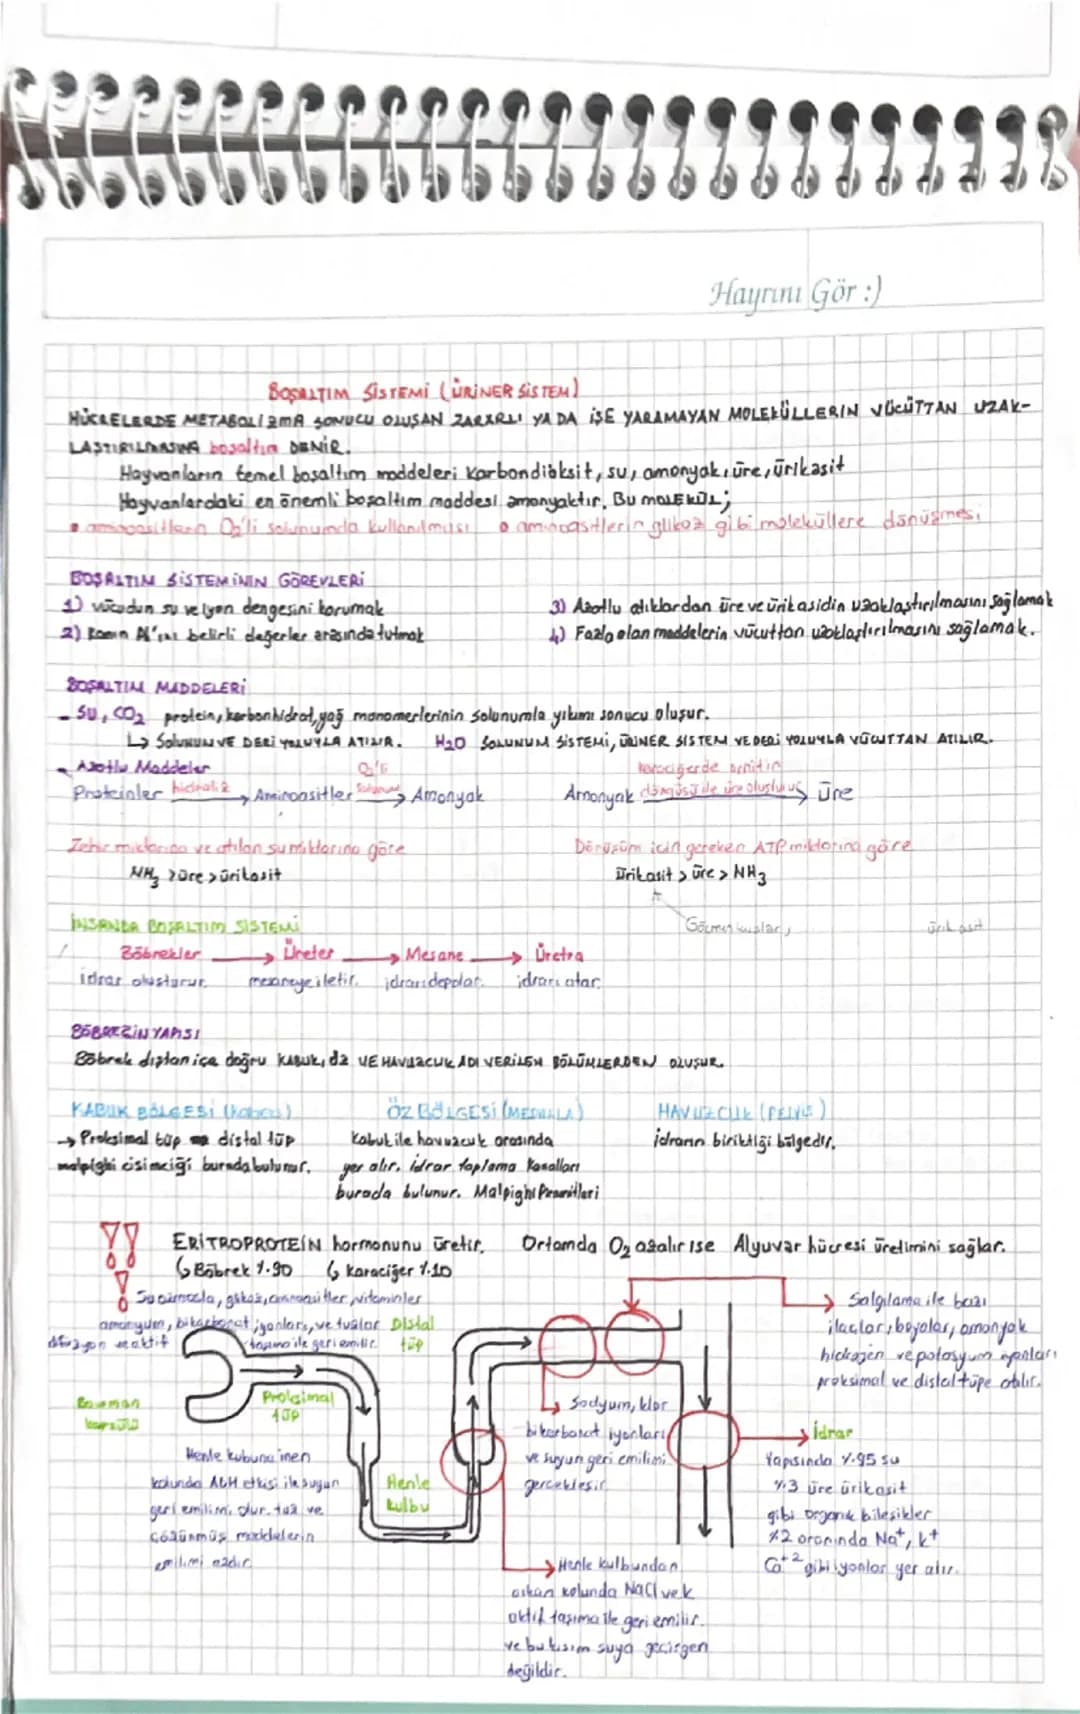 Hayrını Gör :)
BOŞALTIM SİSTEMİ (ÜRİNER SİSTEM)
HÜCRELERDE METABOLİZMA SONUCU OLUŞAN ZARARLI YA DA İŞE YARAMAYAN MOLEKÜLLERİN VÜCÜTTAN UZAK-
LAŞTIRILMASINA boşaltım DENİR.
Hayvanların temel boşaltım maddeleri karbondioksit, su, amonyak, üre, ürikasit
Hayvanlardaki en önemli boşaltım maddesi amonyaktır. Bu MOLEKÜL;
• aminoasitlerin O₂'li solunumda kullanılması • aminoasitlerin glikoz gibi moleküllere dönüşmesi
BOŞALTIM SİSTEMİNİN GÖREVLERİ
1) vücudun su ve iyon dengesini korumak
2) Kanın belirli değerler arasında tutmak
3) Azotlu atıklardan üre ve ürikasidin uzaklaştırılmasını sağlamak
4) Fazla olan maddelerin vücuttan uzaklaştırılmasını sağlamak.
BOŞALTIM MADDELERİ
- SU, CO₂ protein, karbonhidrat, yağ monomerlerinin solunumla yıkımı sonucu oluşur.
↳ SOLUNUM VE DERİ YOLUYLA ATILIR. H₂O SOLUNUM SİSTEMİ, ÜRİNER SİSTEM VE DERİ YOLUYLA VÜCUTTAN ATILIR.
- Azotlu Maddeler
Proteinler hidroliz → Aminoasitler O₂'li Solunum → Amonyak
Amonyak karaciğerde ornitin döngüsü ile üre oluşturur → Üre
Zehir miktarına ve atılan su miktarına göre
NH₃ > Üre > ürikasit
Dönüşüm için gereken ATP miktarına göre
Ürikasit > üre > NH₃
ürik asit
İNSANDA BOŞALTIM SİSTEMİ
Böbrekler → Üreter → Mesane → Üretra
idrar oluşturur. mesaneye iletir. idrarı depolar. idrarı atar.
BÖBREĞİN YAPISI
Böbrek dıştan içe doğru KABUK, öz VE HAVUZCUK ADI VERİLEN BÖLÜMLERDEN OLUŞUR.
KABUK BÖLGESİ (Kabuk)
→ Proksimal tüp distal tüp
malpighi cisimciği burada bulunur.
ÖZ BÖLGESİ (MEDULLA)
Kabuk ile havuzcuk arasında
yer alır. İdrar toplama kanalları
burada bulunur. Malpighi Piramitleri
HAVUZCUK (PELVİS)
idrarın biriktiği bölgedir.
!! ERİTROPROTEİN hormonunu üretir. Ortamda O₂ azalır ise Alyuvar hücresi üretimini sağlar.
↳ Böbrek %90 ↳ Karaciğer %10
! glikoz, aminoasitler, vitaminler
amonyum, bikarbonat iyonları, ve tuzlar
difüzyon ve aktif taşıma ile geri emilir.
Distal
tüp
Bowman
kapsülü
Proksimal
tüp
Henle
kulbu
Henle kubuna inen
kolunda ADH etkisi ile suyun
geri emilimi olur. tuz ve
çözünmüş maddelerin
emilimi azdır
Sodyum, klor
bikarbonat iyonları
ve suyun geri emilimi
gerçekleşir.
→ Henle kulbundan
çıkan kolunda NaCl ve K
aktif taşıma ile geri emilir.
ve bu kısım suya geçirgen
değildir.
→ Salgılama ile bazı
ilaçlar, boyalar, amonyak
hidrojen ve potasyum iyonları
proksimal ve distal tüpe atılır.
→ İdrar
Yapısında %95 su
%3 üre ürikasit
gibi organik bileşikler
%2 oranında Na⁺, K⁺
Ca⁺² gibi iyonlar yer alır.